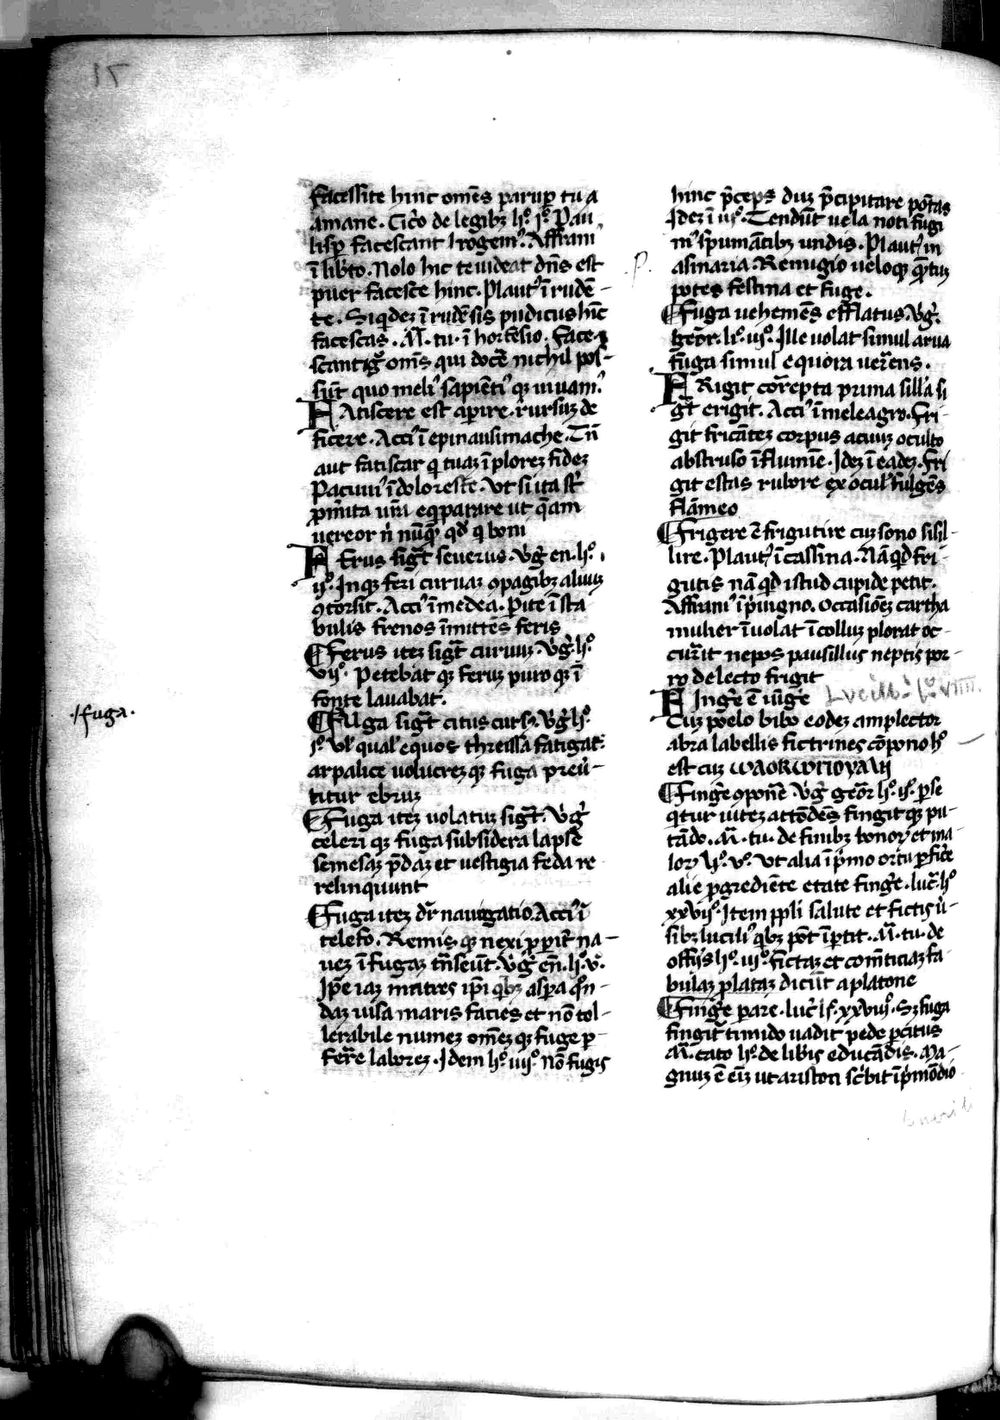 15
facessite hinc om̄s parup̄ tu a
amane. Cic̄o de legibꝫ li°. i°. Pau
lisp̄ facescant
ī lib̄to. Nolo hic te uideat dn̄s est
puer facesc̄e hinc. Plautꝰ ī rudē-
te. Siqidez ī rudēsis pudicus hīc
facescas. M̄. tu. ī hortēsio. facescant
om̄s qui docē nichil pos-
sūt quo meliꝰ sapiētiꝰ qꝫ uiuamꝰ
FAtiscere est aperire. rursuz de
ficere. Acciꝰ ī epinausimache. Tn̄
aut fatiscar q tuaz īplorez fidez
Pacuuiꝰ ī dolorestē. Ut si ita st̄
p̄mita ur̄a eqparare ut q̄am
uereor n̄ nūq̄ qđ q boni
FErus sigt̄ seuerus. Ūḡ en. li°.
ii°. Inqꝫ feri curuaz 9pagibꝫ aluuz
9torsit. Acciꝰ ī medea. Pite ī sta
bulis frenos īmittēs feris
¶ferus itez sigt̄ curuuz. Ūḡ. li°.
vii°. Petebat qꝫ feruz puro qꝫ ī
fonte lauabat.
¶FUga sigt̄ citus cursꝰ. Ūḡ li°.
i°. Ul' qual' equos threissa fatigat:
arpalice uolucrez qꝫ fuga preū-
titur ebruz
¶Fuga itez uolatuz sigt̄. Ūḡ
celeri qꝫ fuga subsidera lapse
semesaz p̄daz et uestigia feda re
relinquunt
¶Fuga itez dr̄ nauigatio. Acciꝰ ī
telefo. Remis qꝫ nexi p̄pit̄ na-
uez ī fugaz tn̄seūt. Ūḡ en̄. li°. v°.
Ip̄e iaz matres ip̄i qbꝫ asp̄a qn̄-
daz uisa maris facies et nō tol-
lerabile numez om̄ez qꝫ fuge p̄-
fer̄e laborez. Idem li°. iiii°. nō fugis
./fuga.
hinc p̄ceps duz p̄cipitare pōtas
Idez ī iii°. Tendūt uela noti fugi
mꝰ spumātibꝫ undis. Plautꝰ in
asinaria. Remugio ueloqꝫ q̄tuz
potes festina et fuge.
p.
¶Fuga uehemēs efflatus. Ūḡ.
geōr. li°. iii°. Ille uolat simul arua
fuga simul equora uer̄ens.
FRigit cor̄epta prima silla si
gt̄ erigit. Acciꝰ ī meleagro. Fri-
git fricātez corpus acuuz oculto
abstruso ī flumīe. Idez ī eadez. Fri
git estas rubore ex ocul' fulgēs
flāmeo
¶Frigere ē frigutire cuz sono sisil-
lire. Plautꝰ ī cassina. Nā qđ fri-
gutis nā qđ istud cupide petit.
Affraniꝰ ī p̄uigno. Occasiōez cartha
mulier īuolat ī colluz plorat oc-
cur̄it nepos pausillus neptis por-
ro delecto frigit
FInḡe ē iūḡe Lucill: l°. VIIII.
Cuz poelo bibo eodez amplector
abra labellis fictrines cōpono h°
est cuz
¶Finḡe 9pon̄e Ūḡ geōr li°. ii°. p̄se
qtur uitez attōdēs fingit qꝫ pu-
tādo. M̄. tu. de finibꝫ bonoꝝ et ma-
loꝝ li°. v°. Ut alia īp̄mo ortu p̄fic̄e
alie p̄grediēte etate finḡe. luc̄. li°
xxvii°. Item ppli salute et fictis ū-
sibꝫ luciliꝰ qbꝫ pōt īp̄tit. M̄. tu. de
offiis li°. iii°. fictaz et com̄ticiaz fa-
bulaz plataz dicūt a platone
¶Finḡe pare. luc̄. li°. xxviii°. Sz fuga
fingit̄ timido uadit pede p̄citus
M̄. cato li°. de lib̄is educādis. Ma-
gnuz ē eīz ut aristori sc̄bit īp̄mōdio